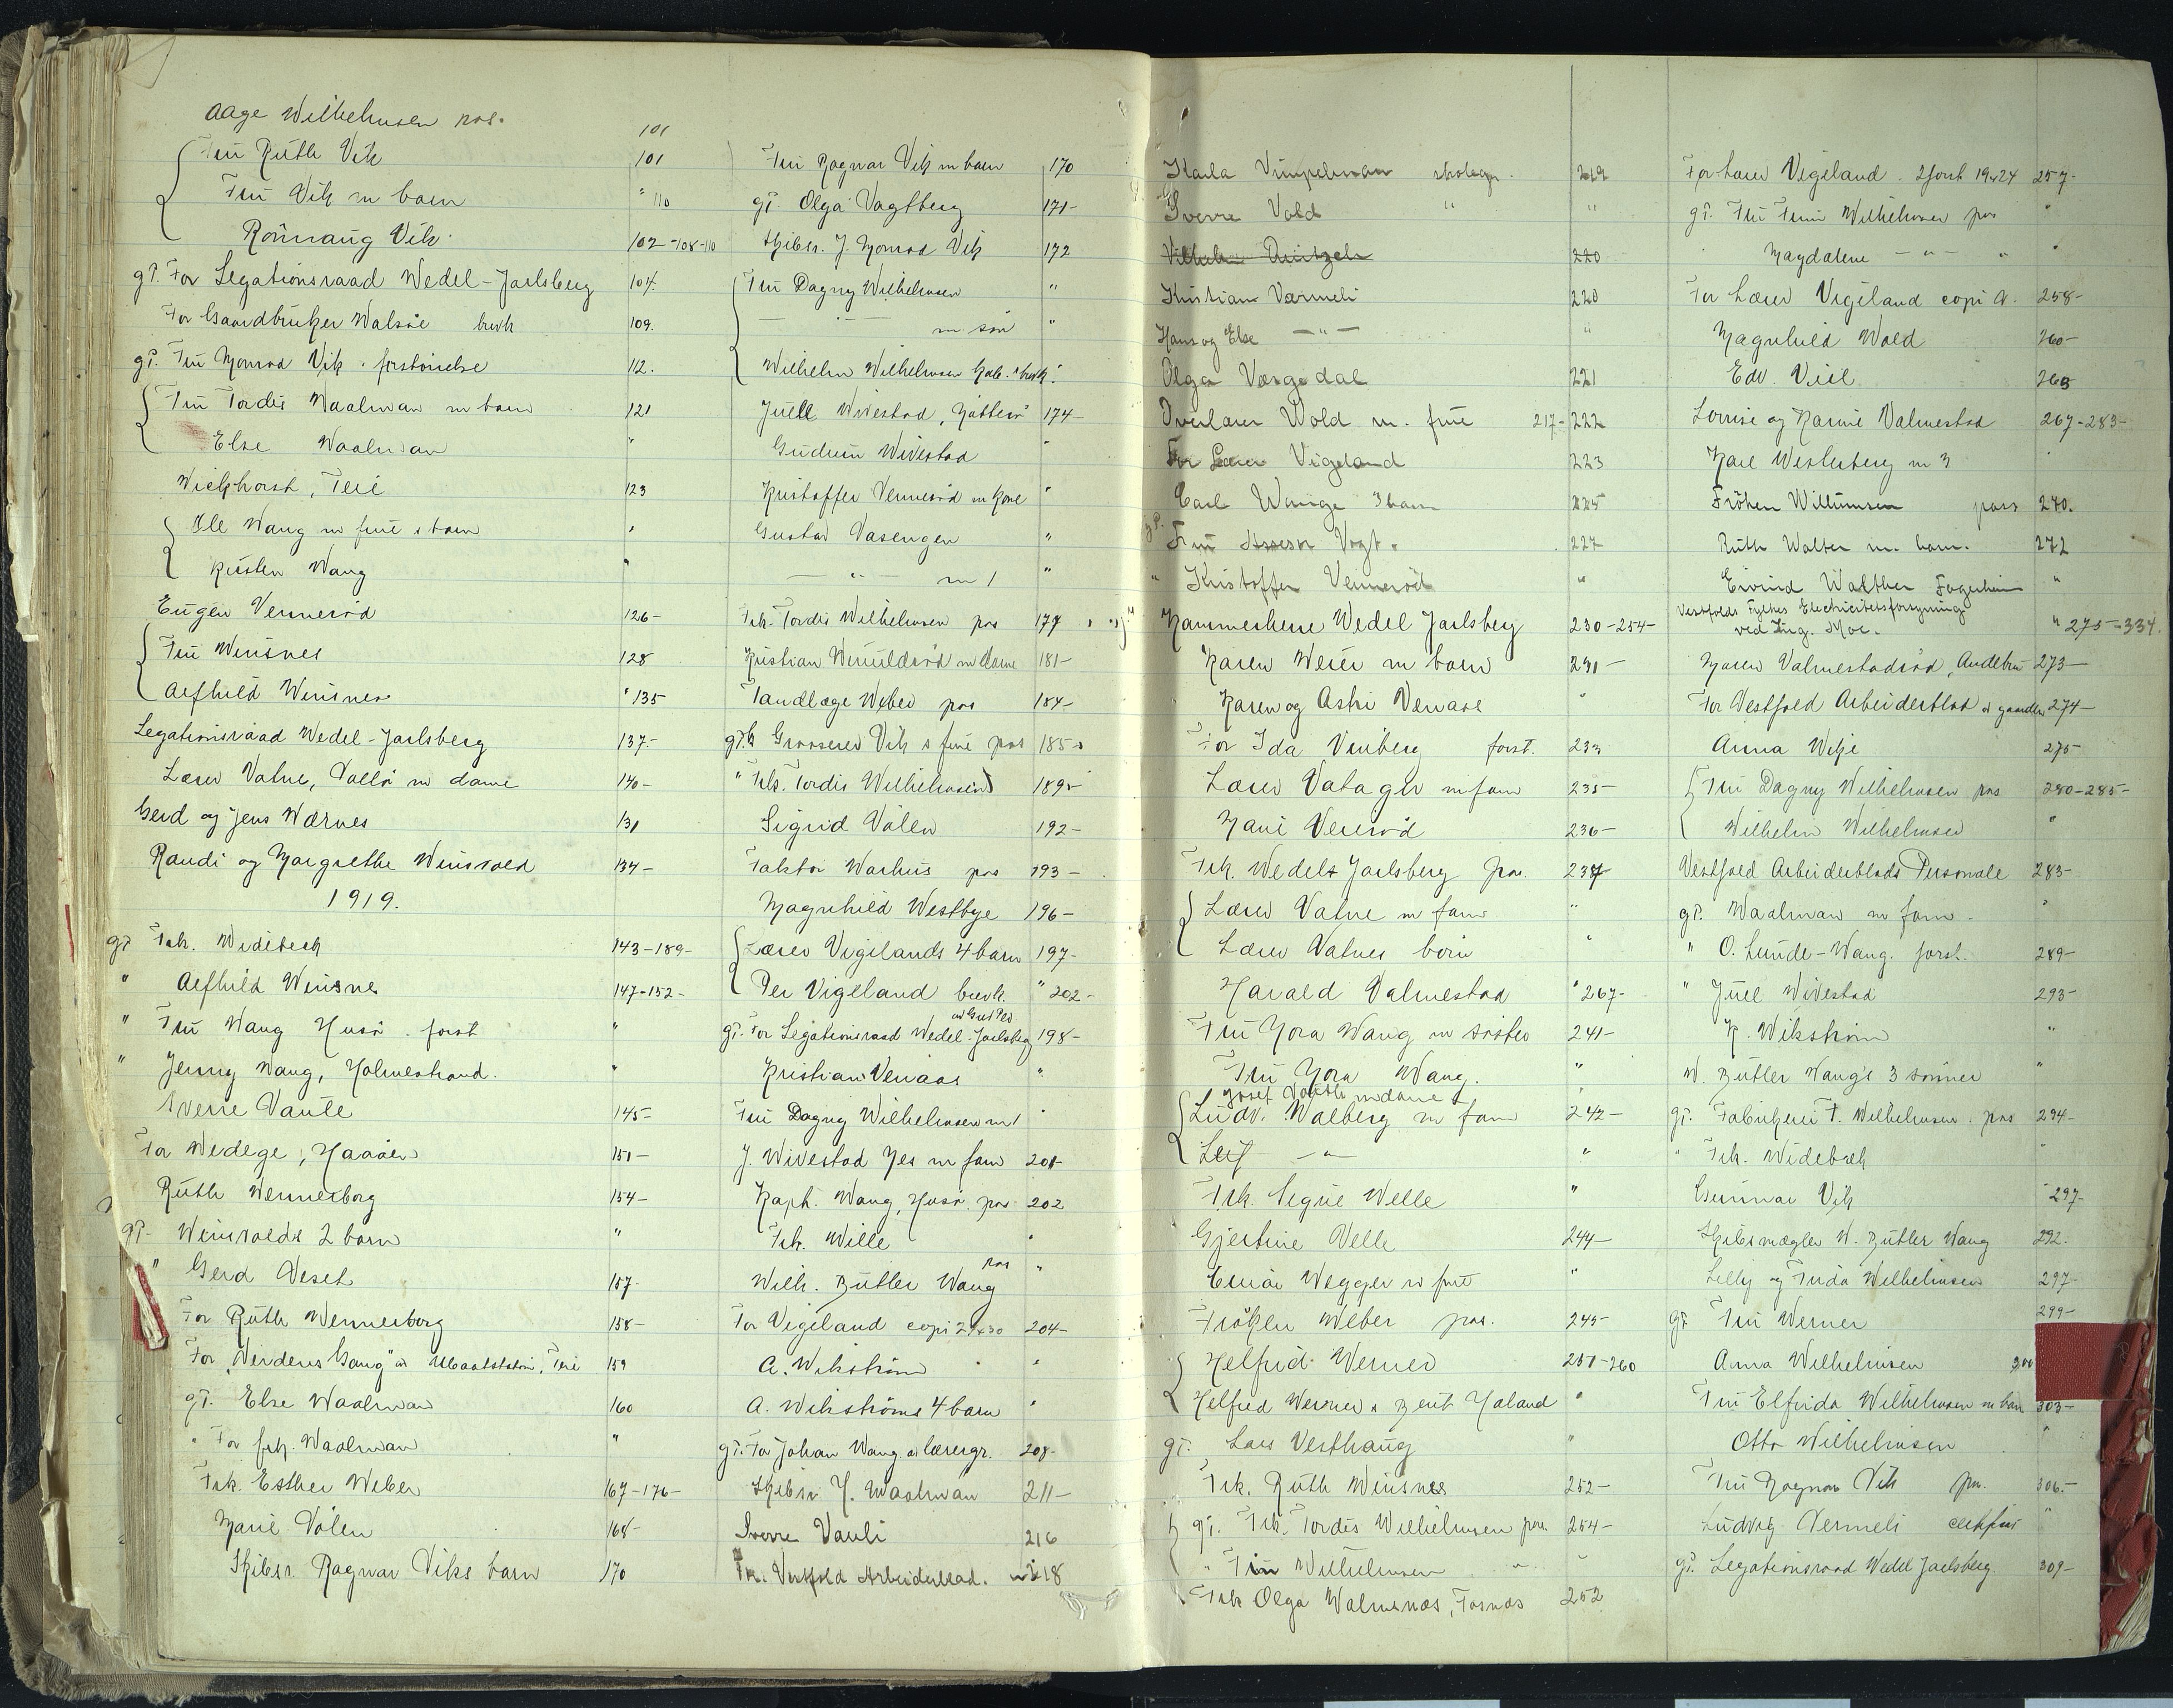 Aage Wilhelmsen pas. 101
Fru Ruth Vik 101
Fru Vik m barn " 110
Rönnaug Vik 102-108-110
gP. For Legationsraad Wedel-Jarlsberg 104.
For Gaardbruker Walsöe brevk 109.
gP. Fru Monrad Vik. forstörrelse 112.
Fru Tordis Waalman m barn 121
Else Waalman "
Wickhorst, Teie 123
Ole Wang m frue & barn "
Kirsten Wang "
Eugen Venneröd 126-
Fru Winsnes 128
Alfhild Winsnes " 135
Legationsraad Wedel-Jarlsberg 137-
Lærer Valne, Vallö m dame 140-
Gerd og Jens Wærnes 131
Randi og Margrethe Winsvold 134-
1919.
gP Frk. Widebeck 143-189-
" Alfhild Winsnes 147-152-
" Fru Wang Husö. forst "
" Jenny Wang, Holmestrand. "
Sverre Vaule 145-
For Wedege, Haaöen 151-
Ruth Wennerborg 154-
gP- Winsvolds 2 barn "
" Gerd Veset 157-
For Ruth Wennerborg 158-
For "Verdens Gang" Ubaatstation, Teie 159
gP. Else Waalman 160
" For frk. Waalman "
Frk. Esther Weber 167-176-
Marie Volen 168-
Skibsr. Ragnar Viks barn 170
Fru Ragnar Vik m barn 170
gP. Olga Vagtberg 171-
Skibsr. J. Monrad Vik 172
Fru Dagny Wilhelmsen "
— " — m sön "
Wilhelm Wilhelmsen Kab. & brevk.
Juell Wivestad, Nötterö 174-
Gudrun Wivestad "
Kristoffer Venneröd m kone "
Gustav Vasengen "
— " — m 1 "
Frk. Tordis Wilhelmsen pas 177
Kristian m dame 181-
Tandlæge Weber pas 184-
gP. Grosserer Vik & frue pas 185-
" Frk. Tordis Wilhelmsen 189-
Sigrid Volen 192-
Faktor Warhus pas 193-
Magnhild Westbye 196-
Lærer Vigelands 4 barn 197-
Per Vigeland brevk. " 202-
gP. For Legationsraad Wedel-Jarlsberg 198-
Kristian Venaas "
Fru Dagny Wilhelmsen m 1 "
J. Wivestad Yes m fam 201-
Kapt. Wang, Husö. pas 202
Frk. Wille "
Wilh. Butler Wang pas "
For Vigeland copi 24x30 204-
A. Wikström "
A. Wikströms 4 barn "
gP. For Johan Wang lærergr. 208-
Skibsr. H. Waalman 211-
Sverre Vauli 216
Fr. Vestfold Arbeiderblad. 218
Karla Vimpelman 219
Sverre Vold " "
220
Kristian Varmeli 220
Hans og Else — " — "
Olga Vægedal 221
Overlærer Wold m. frue 217-222
For Lærer Vigeland 223
Carl Wange 3 barn 225
gP. Fru Assesor Vogt. 227
" Kristoffer Venneröd "
Kammerherre Wedel Jarlsberg 230-254-
Karen Weier m barn 231-
Karen og Astri Venaas "
For Ida Vinberg forst. 233
Lærer Vatager m fam 235-
Marie Veneröd 236-
Frk. Wedel Jarlsberg pas. 237
Lærer Valne m fam "
Lærer Valnes börn "
Harald Valmestad " 267-
Fru Mora Wang m söster 241-
Fru Mora Wang. "
Josef m dame
Ludv. Walberg m fam 242-
Leif — " — "
Frk. Signe Welle "
Gjertine Velle 244-
Einar Wegger & frue "
Fröken Weber pas. 245-
Helfrid Werner 251-260
Helfred Werner & Berit Haland "
gP. Lars Vesthaug "
Frk. Ruth Winsnes 252-
gP. Frk. Tordis Wilhelmsen pas. 254-
" Fru Wilhelmsen " -
Frk Olga Walmenæs, Farnæs 252
For Lærer Vigeland. 2 forst 19x24 257-
gP. Fru Wilhelmsen pas "
Magdalene — " — " "
For Lærer Vigeland copi a. 258-
Magnhild Wold 260-
Edv. Viel 266
Lovise og Karine Valmestad 267-283-
Karl Westerberg m 3 "
Fröken Willumsen pass 270.
Ruth Walter m. barn. 272
Eivind Walther Fagerheim "
Vestfolds Fylkes Electricitetsforsyning
ved Ing. Moe. " 275-334.
Maren Valmestadröd, Andebu 273-
For Vestfold Arbeiderblad gaarden 274-
Anna Wilje 275-
Fru Dagny Wilhelmsen pas 280-285-
Wilhelm Wilhelmsen "
Vestfold Arbeiderblads Personale 283-
gP. Waalman m fam. "
" O. Lunde-Wang. forst. 289-
" Juel Wivestad 293-
K. Wikström "
W. Butler Wang's 3 sönner "
gP. Fabrikeier F. Wilhelmsen. pas 294-
" Frk. Widebæk "
Gunnar Vik " 297-
Skibsmægler W. Butler Wang 292.
Lilly og Frida Wilhelmsen 297-
gP Fru Werner 299-
Anna Wilhelmsen 300
Fru Elfrida Wilhelmsen m barn 303-
Otto Wilhelmsen "
Fru Ragnar Vik pas. 306.-
Ludvig Vermeli "
gP. Legationsraad Wedel Jarlsberg 309-